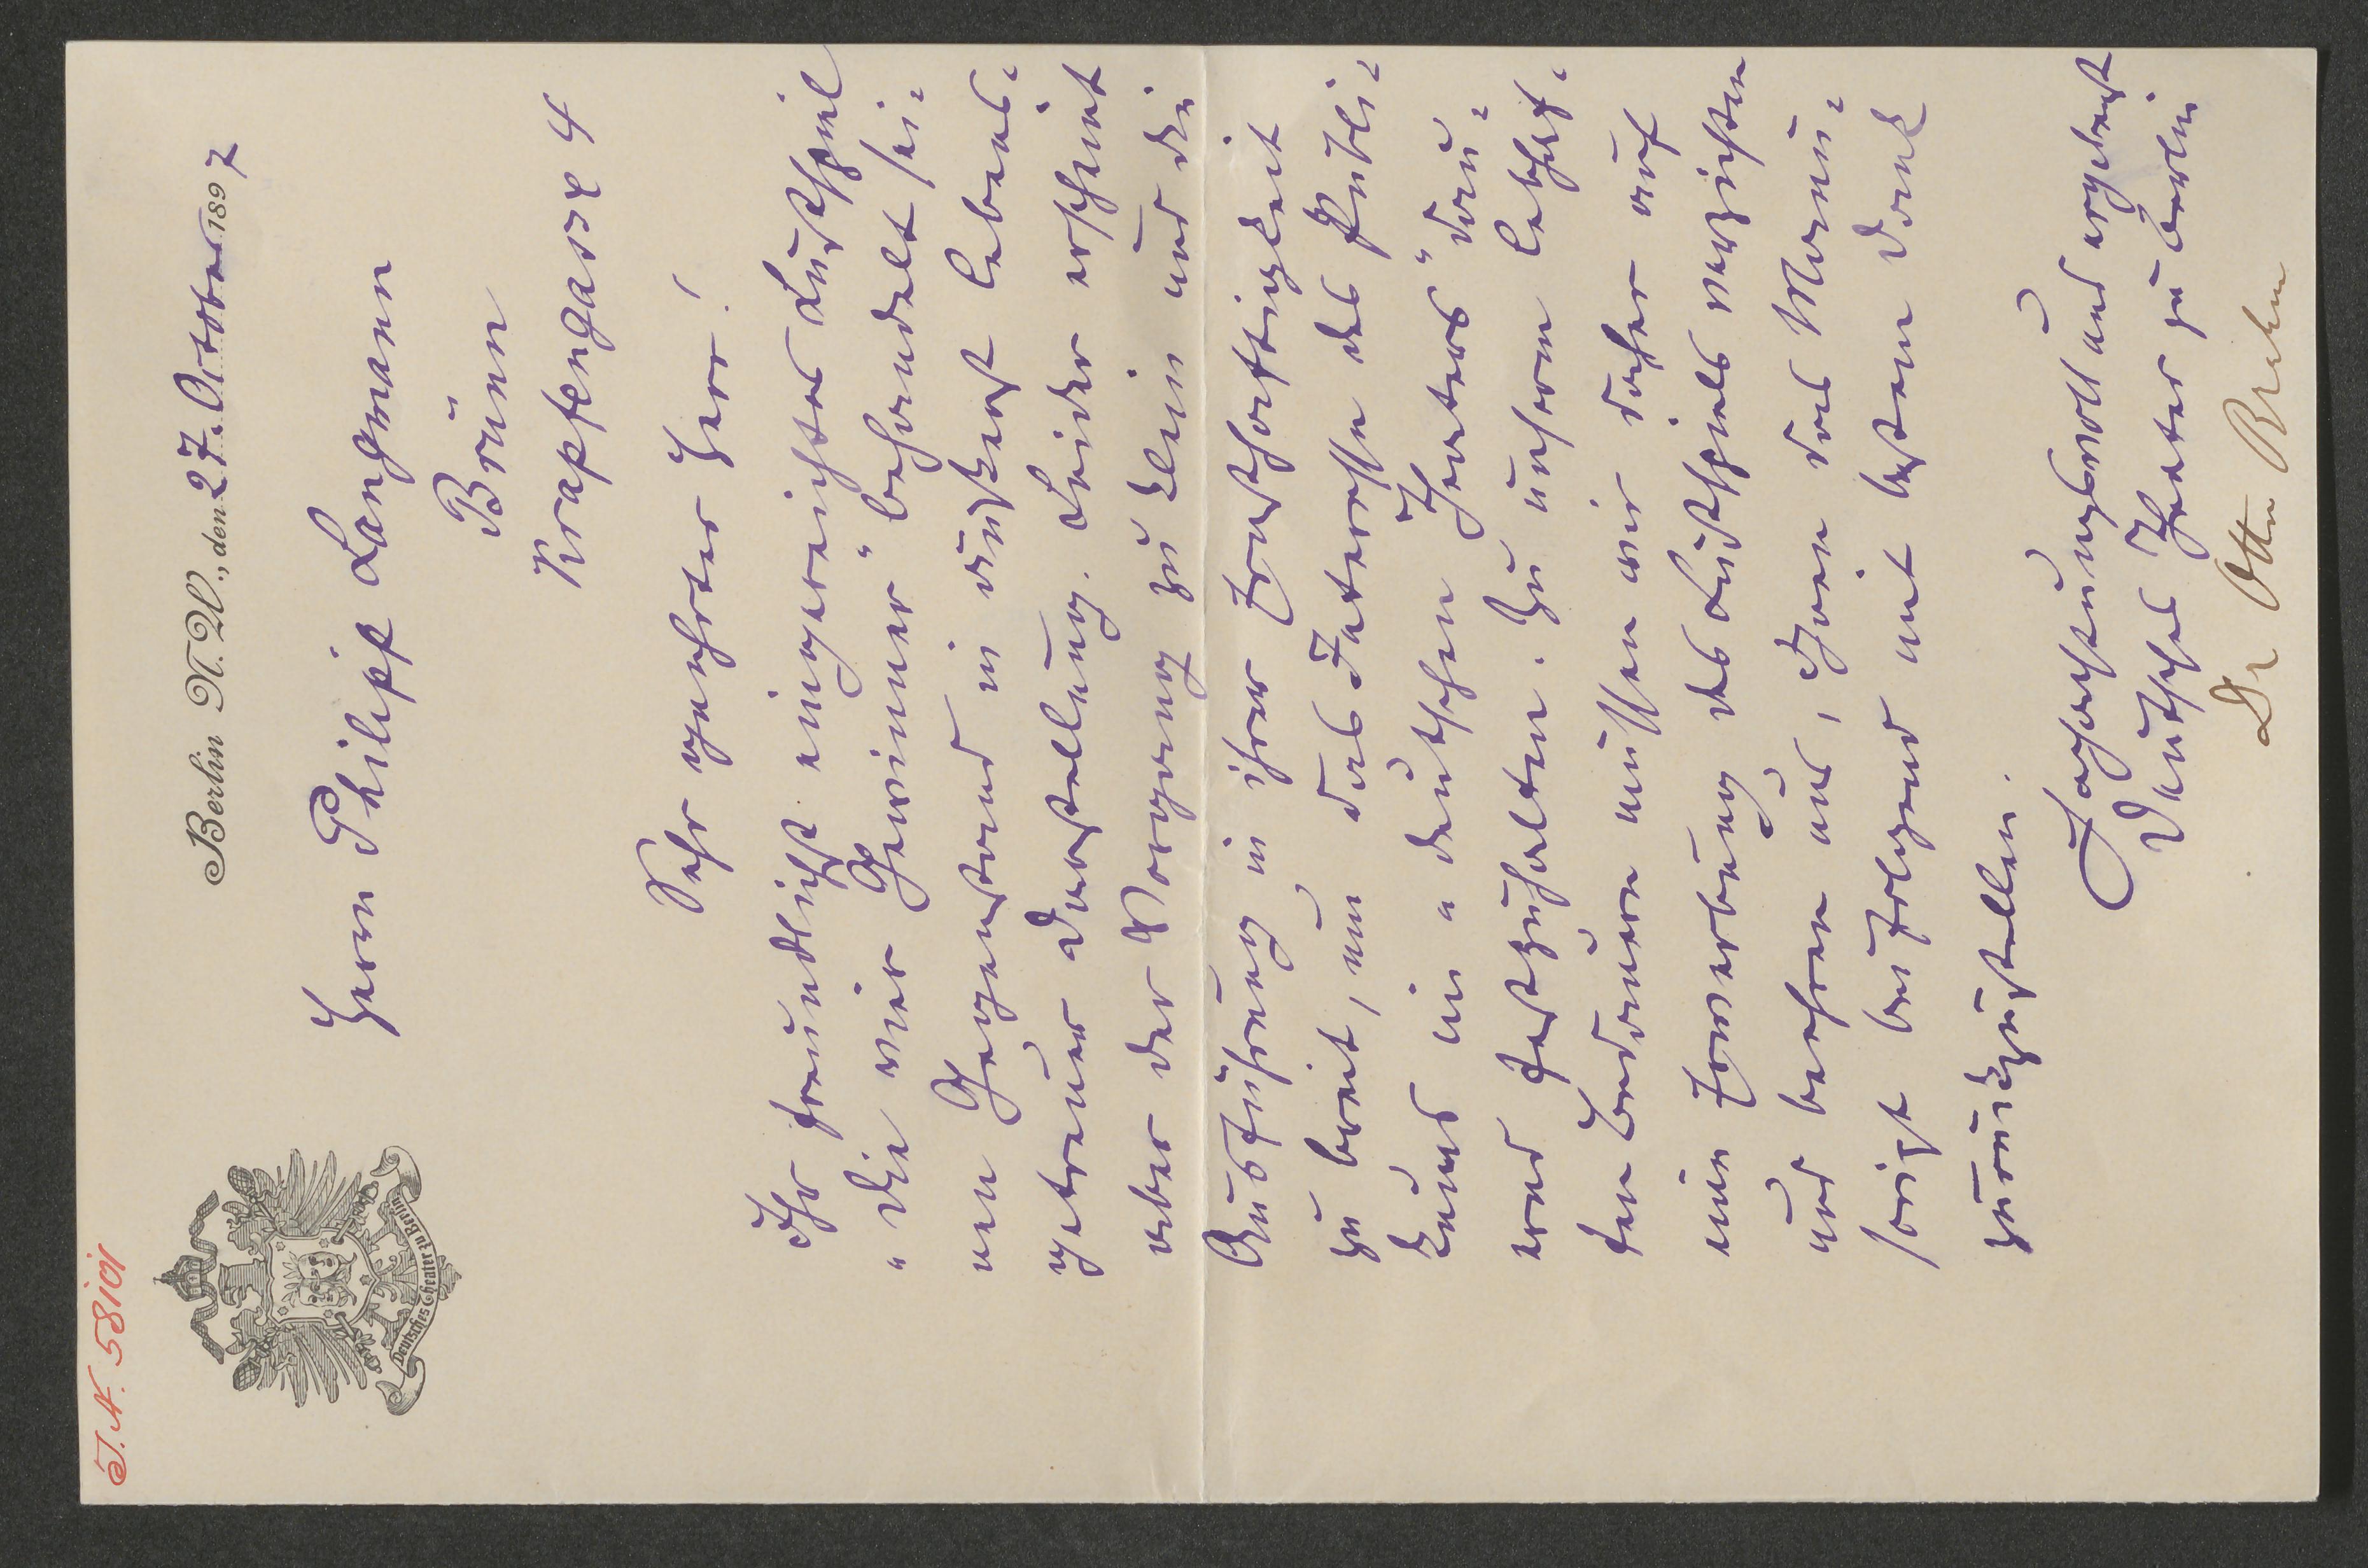 I. N. 58101
Deutsches Theater zu Berlin
Berlin N.W., den 27. October 1897
Herrn Philipp Langmann
Brünn
Krapfengasse 4
Sehr geehrter Herr!
Ihr freundlichst eingereichtes Lustspiel
„Die vier Gewinner" behandelt sei-
nen Gegenstand in äußerst lebens-
getreuer Darstellung. Leider erscheint
aber der Vorgang zu klein und die
Ausführung in ihrer Ernsthaftigkeit
zu breit, um das Interesse des Publi-
kums im „deutschen Theaters" dau-
ernd festzuhalten. Zu unserm lebhaf-
ten Bedauern müssen wir daher auf
eine Erwerbung des Lustspiels verzichten
und beehren uns, Ihnen das Manu-
script beifolgend mit bestem Dank
zurückzustellen.
Hochachtungsvoll und ergebenst
Deutsches Theater zu Berlin
Dr Otto Brahm